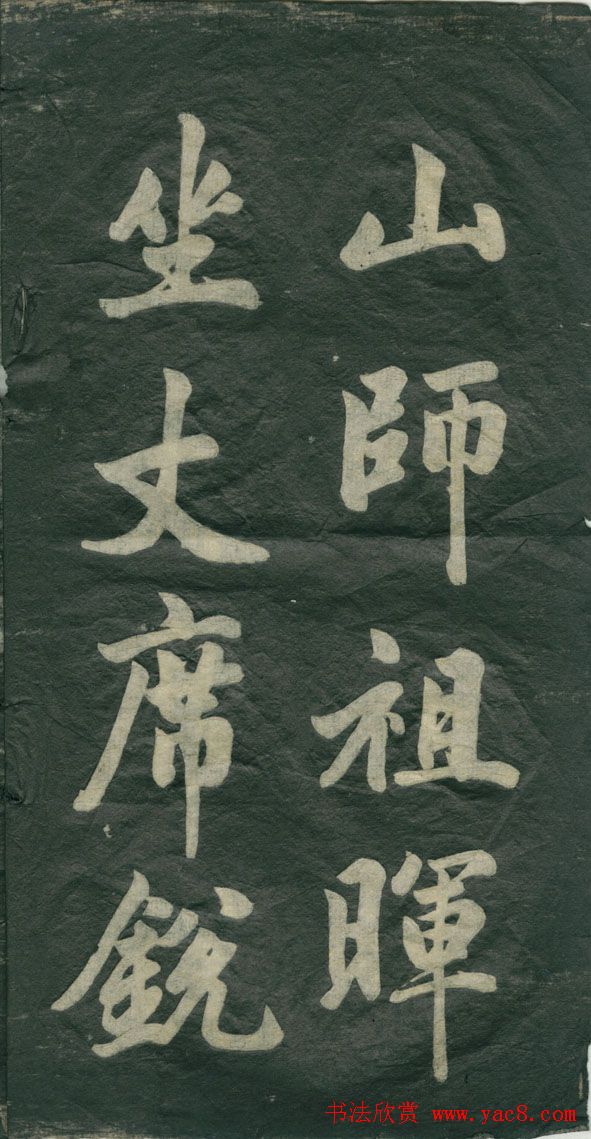 山師祖暉
坐丈席銳
书法欣赏 www.yac8.com